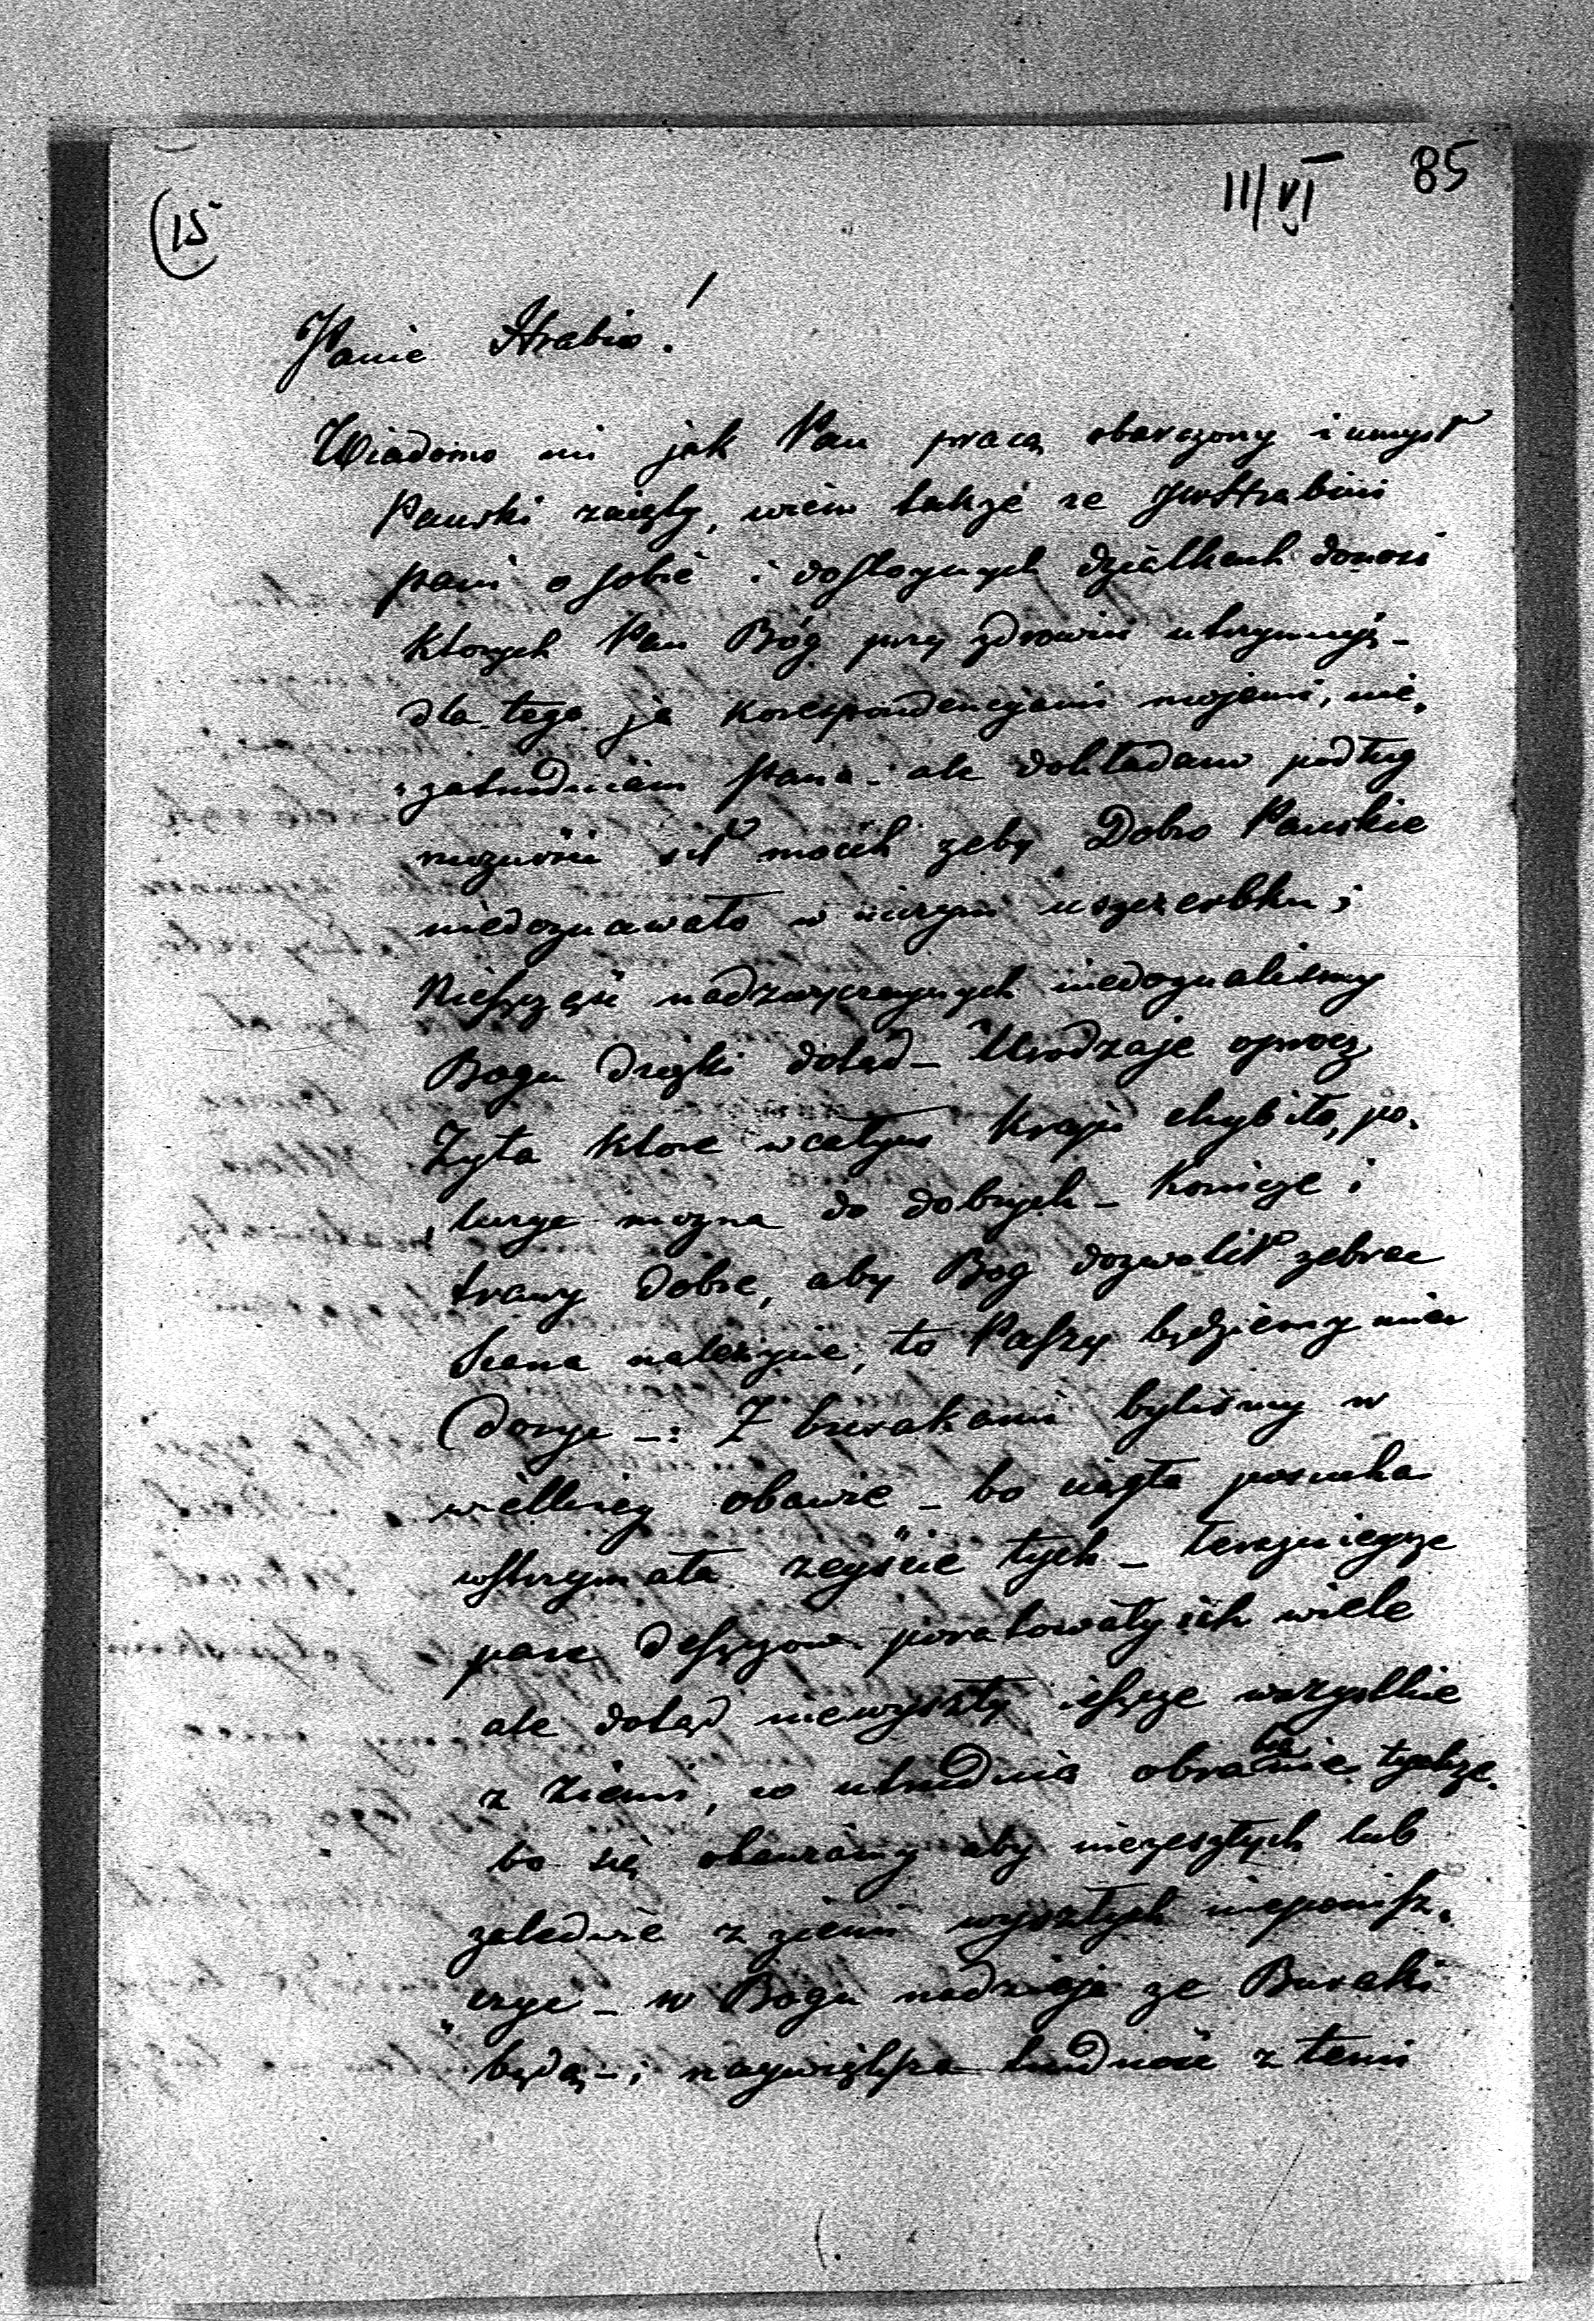 85
III/VI
(15
Panie Hrabio!
Wiadomo mi jak Pan pracą obarczony i umysł
Pański zajęty, wiem także ze JWHrabini
pani o sobie i dostoynych dziatkach donosi
ktorych Pan Bóg przy zdrowiu utrzymuje -
dla tego ja korespondencyami mojemi, nie,
"zatrudniam Pana - ale dokładam podług
możności sił moich zeby Dobro Pańskie
niedoznawało w niczym uszczerbku;
Nieszczęść nadzwyczaynych niedoznaliśmy
Bogu dzięki dotąd - Urodzaje oprocz
Zyta ktore w całym kraju chybiło, po,
"liczyc mozna do dobrych - Konicze i
trawy dobre, aby Bog dozwolił zebrac
siana należycie, to Paszy będziemy miec
dosyc -: Z burakami byliśmy w
wielkiey obawie - bo ciągła posucha
wstrzymała zeyście tych - terazniejsze
pare deszczow poratowały ich wiele
ale dotąd niewyszły jeszcze wszystkie
z ziemi, co utrudnia obrabianie tychze
bo się obawiamy aby niezeszłych lub
zaledwie z ziemi wyszłych nieponisz,
"czyc - w Bogu nadzieja ze Buraki
będą -; naywiększa trudność z temi